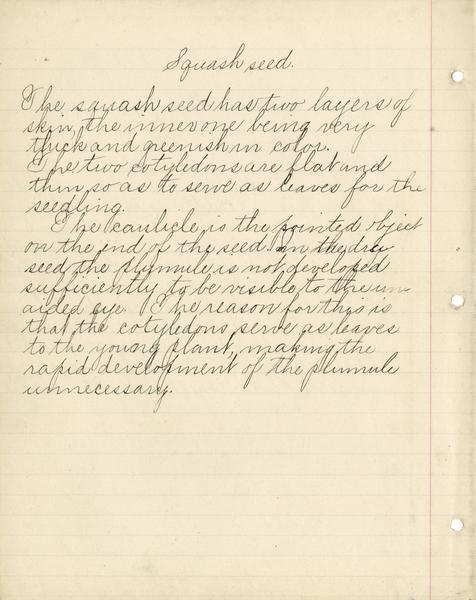 Squash seed.
The squash seed has two layers of
skin, the inner one being very
thick and greenish in color.
The two cotyledons are flat and
thin so as to serve as leaves for the
seedling.
The caulicle is the pointed object
on the end of the seed. In the dry
seed the plumule is not developed
sufficiently to be visible to the un
aided eye. The reason for this is
that the cotyledons serve as leaves
to the young plant, making the
rapid development of the plumule
unnecessary.